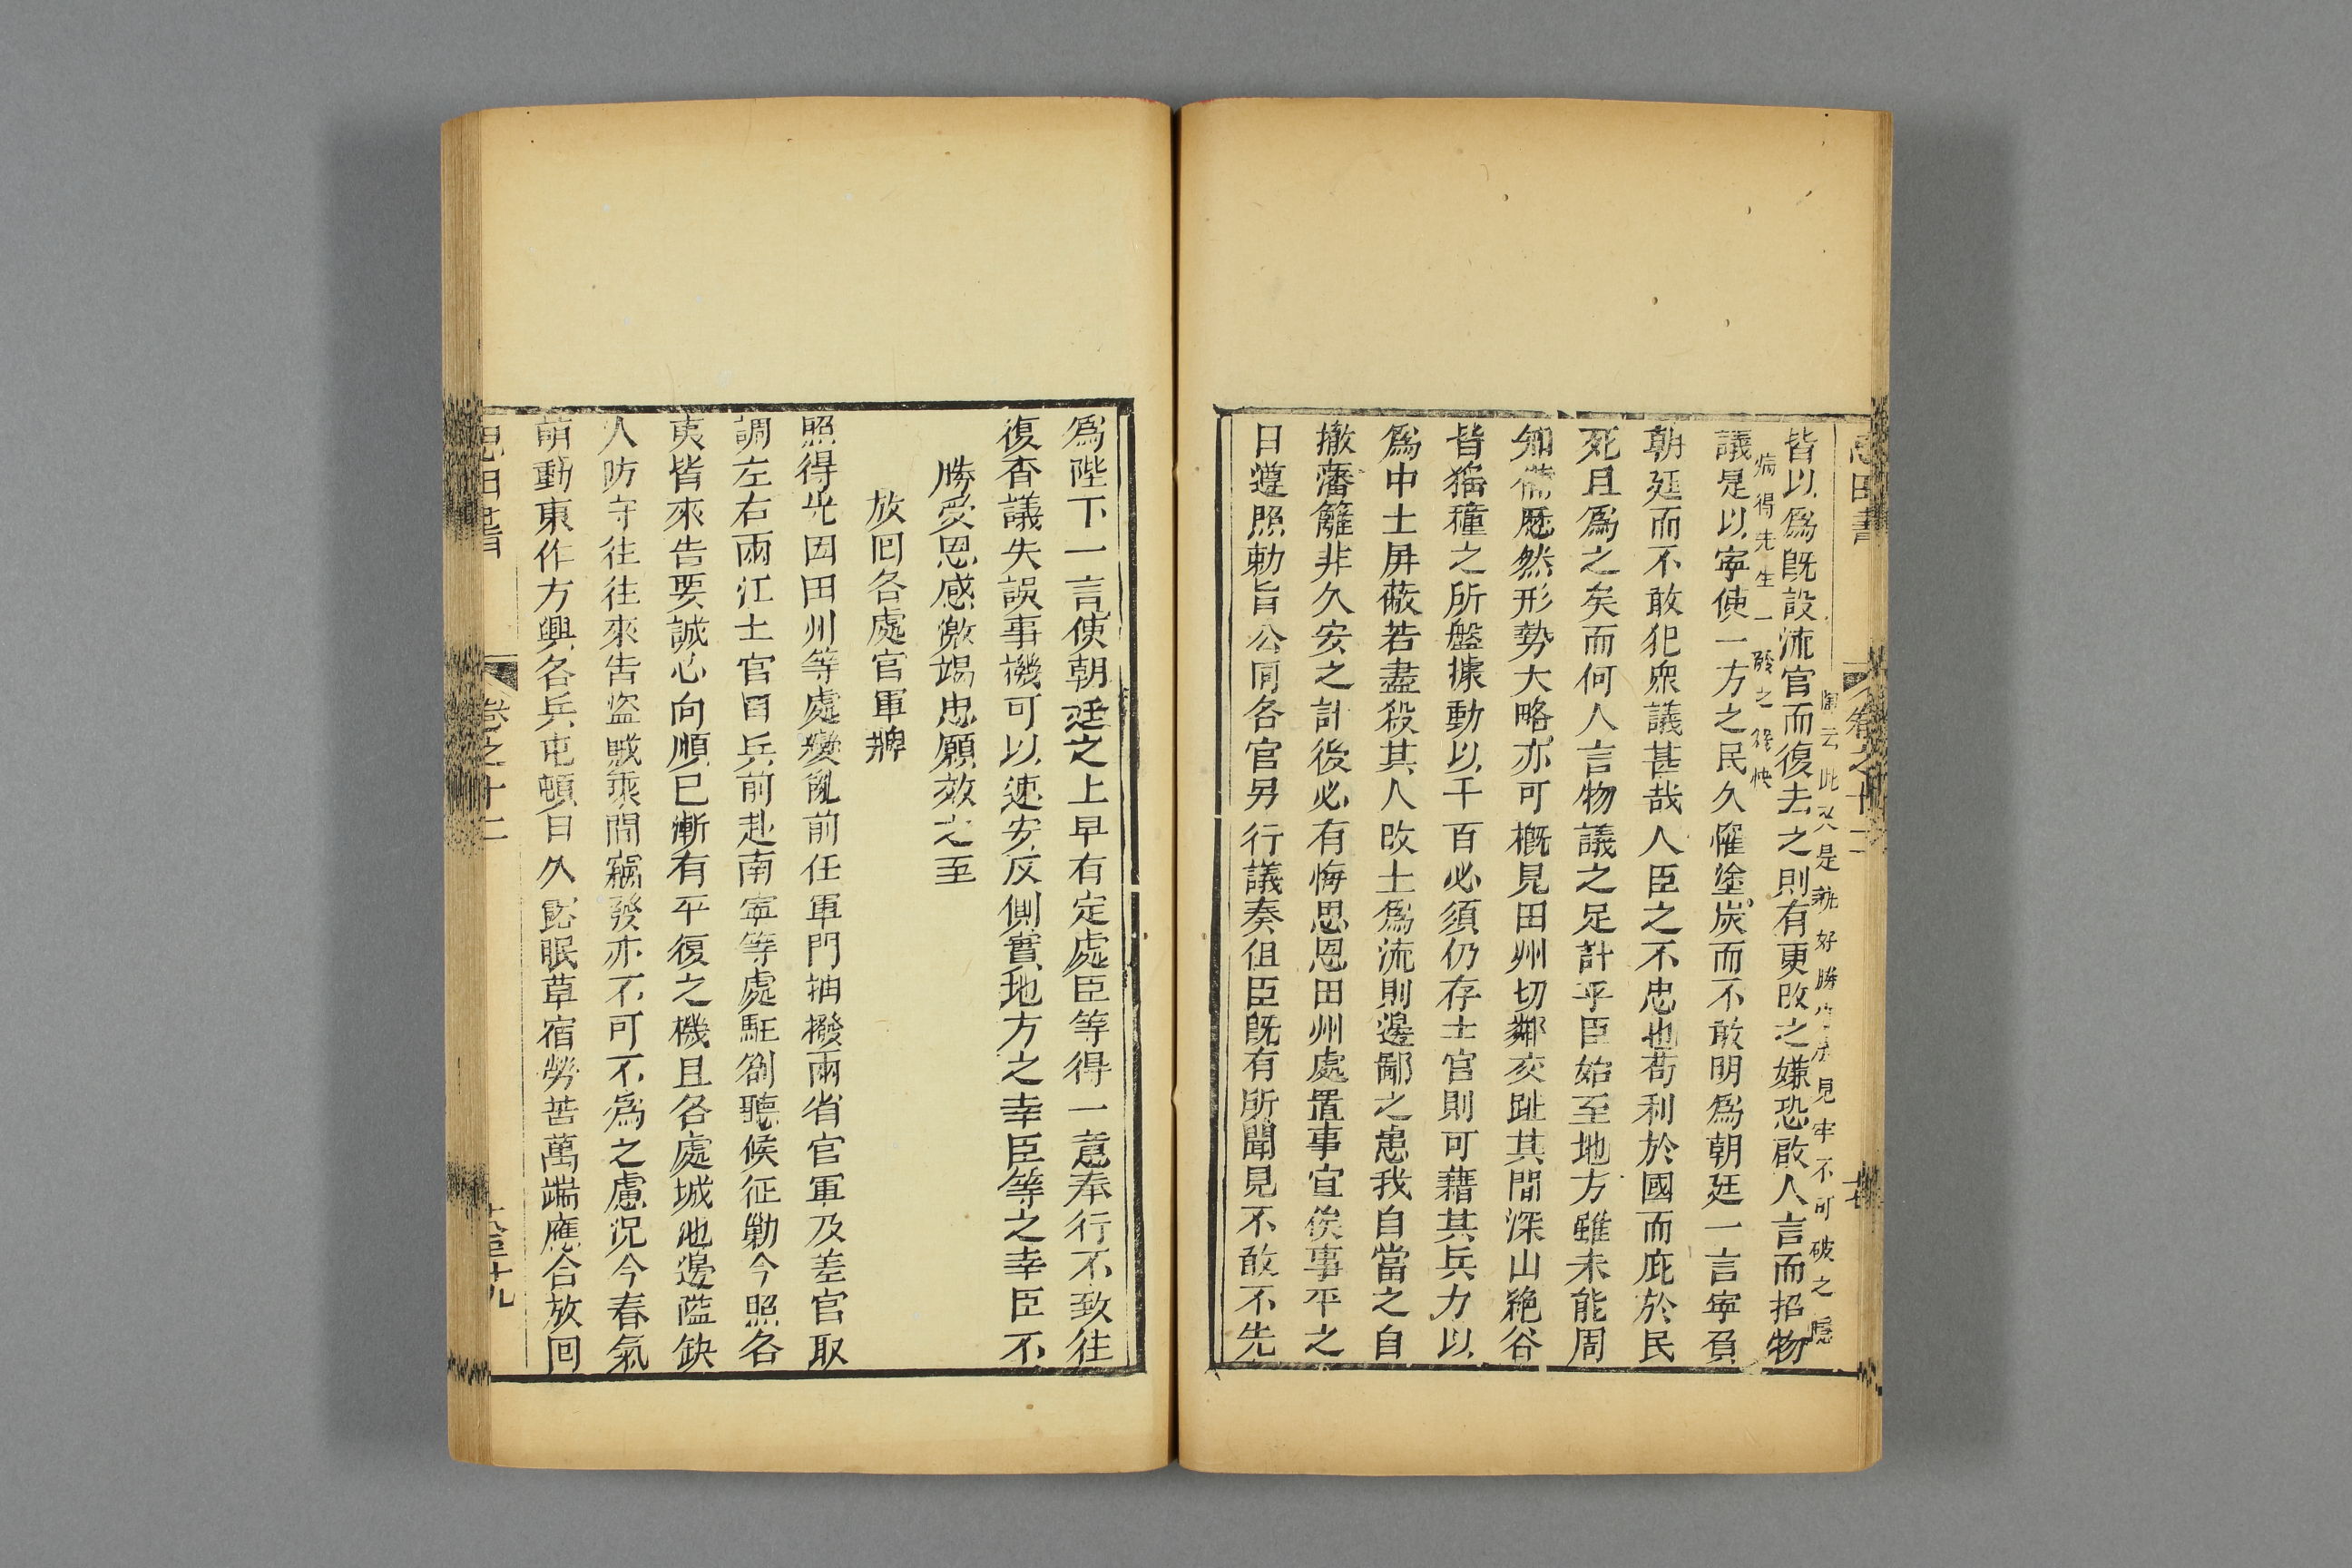 皆以爲旣設流官而復去之則有更改之嫌恐啟人言而招物
議是以寧使一方之民久罹塗炭而不敢明爲朝廷一言寧負
朝廷而不敢犯衆議甚哉人臣之不忠也苟利於國而庇於民
死且爲之矣而何人言物議之足計乎臣始至地方雖未能周
知備歷然形勢大略亦可槪見田州切鄰交趾其間深山絶谷
皆猺獞之所盤據動以千百必須仍存土官則可藉其兵力以
爲中土屏蔽若盡殺其人改土爲流則邊鄙之患我自當之自
撤藩籬非久安之計後必有悔思恩田州處置事宜俟事平之
日遵照勅旨公同各官另行議奏但臣旣有所聞見不敢不先
爲陛下一言使朝廷之上早有定處臣等得一意奉行不致往
復查議失誤事機可以速安反側實地方之幸臣等之幸臣不
勝受恩感激竭忠願效之至
放回各處官軍牌
照得先因田州等處變亂前任軍門抽撥兩省官軍及差官取
調左右兩江土官目兵前赴南寧等處駐劄聽候征勦今照各
夷皆來告要誠心向順已漸有平復之機且各處城池邊隘缺
人防守往往來告盜賊乘間竊發亦不可不爲之慮況今春氣
萌動東作方興各兵屯頓日久露眠草宿勞苦萬端應合放回
卷之十二